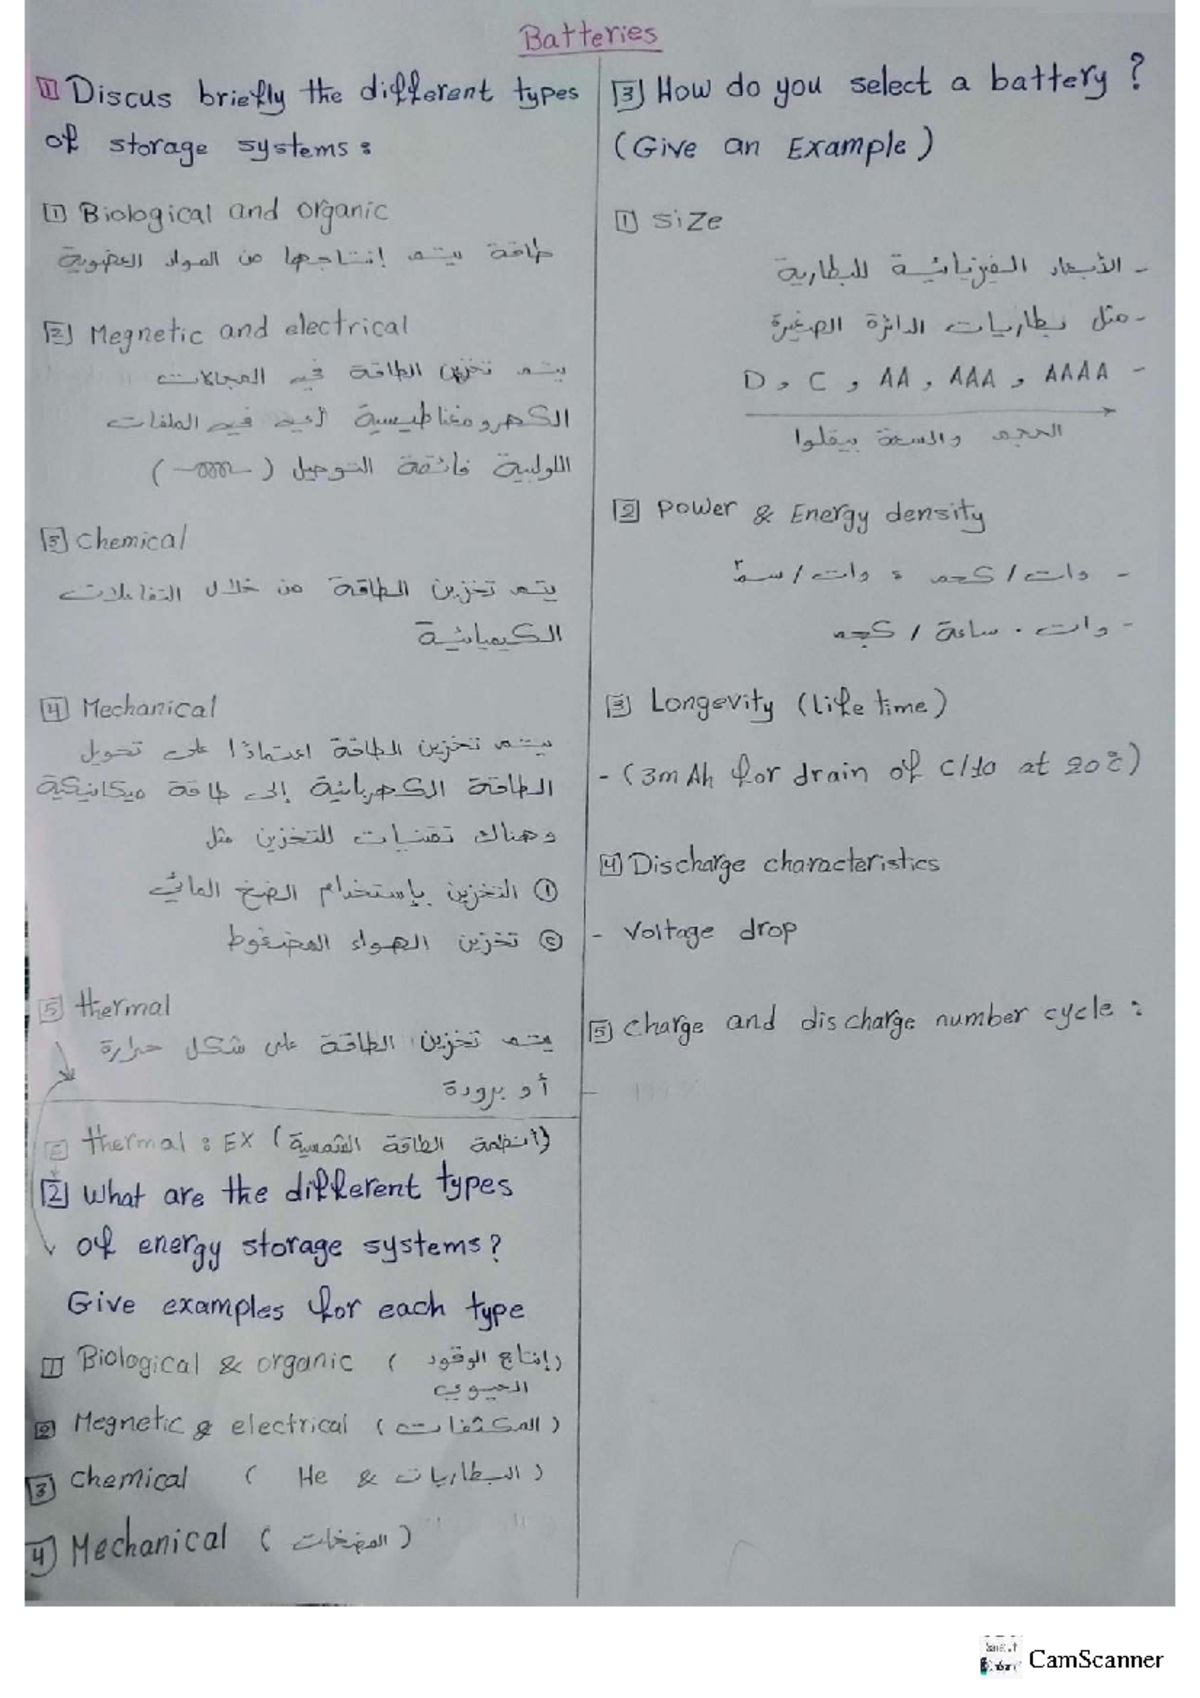 Batteries
[1] Discus briefly the different types
of storage systems:
[1] Biological and organic
طاقة يتم إنتاجها من المواد العضوية
[2] Megnetic and electrical
يتم تخزين الطاقة في المجالات
الكهرومغناطيسية أي في الملفات
اللولبية فائقة التوصيل ( )
[3] Chemical
يتم تخزين الطاقة من خلال التفاعلات
الكيميائية
[4] Mechanical
يتم تخزين الطاقة اعتمادًا على تحويل
الطاقة الكهربائية إلى طاقة ميكانيكية
وهناك تقنيات للتخزين مثل
① التخزين بإستخدام الضخ المائي
② تخزين الهواء المضغوط
[5] thermal
يتم تخزين الطاقة على شكل حرارة
أو برودة
[5] thermal : EX (أنظمة الطاقة الشمسية)
[2] What are the different types
of energy storage systems?
Give examples for each type
[1] Biological & organic (إنتاج الوقود
الحيوي)
[2] Megnetic & electrical (المكثفات)
[3] Chemical (البطاريات & He)
[4] Mechanical (المضخات)
[3] How do you select a battery ?
(Give an Example)
[1] Size
- الأبعاد الفيزيائية للبطارية
- مثل بطاريات الدائرة الصغيرة
- D , C , AA , AAA , AAAA
الحجم والسعة بيقلوا
[2] Power & Energy density
- وات / كجم ؛ وات / سم٣
- وات . ساعة / كجم
[3] Longevity (life time)
- (3mAh for drain of C/10 at 20°C)
[4] Discharge characteristics
- Voltage drop
[5] Charge and discharge number cycle :
-
CamScanner